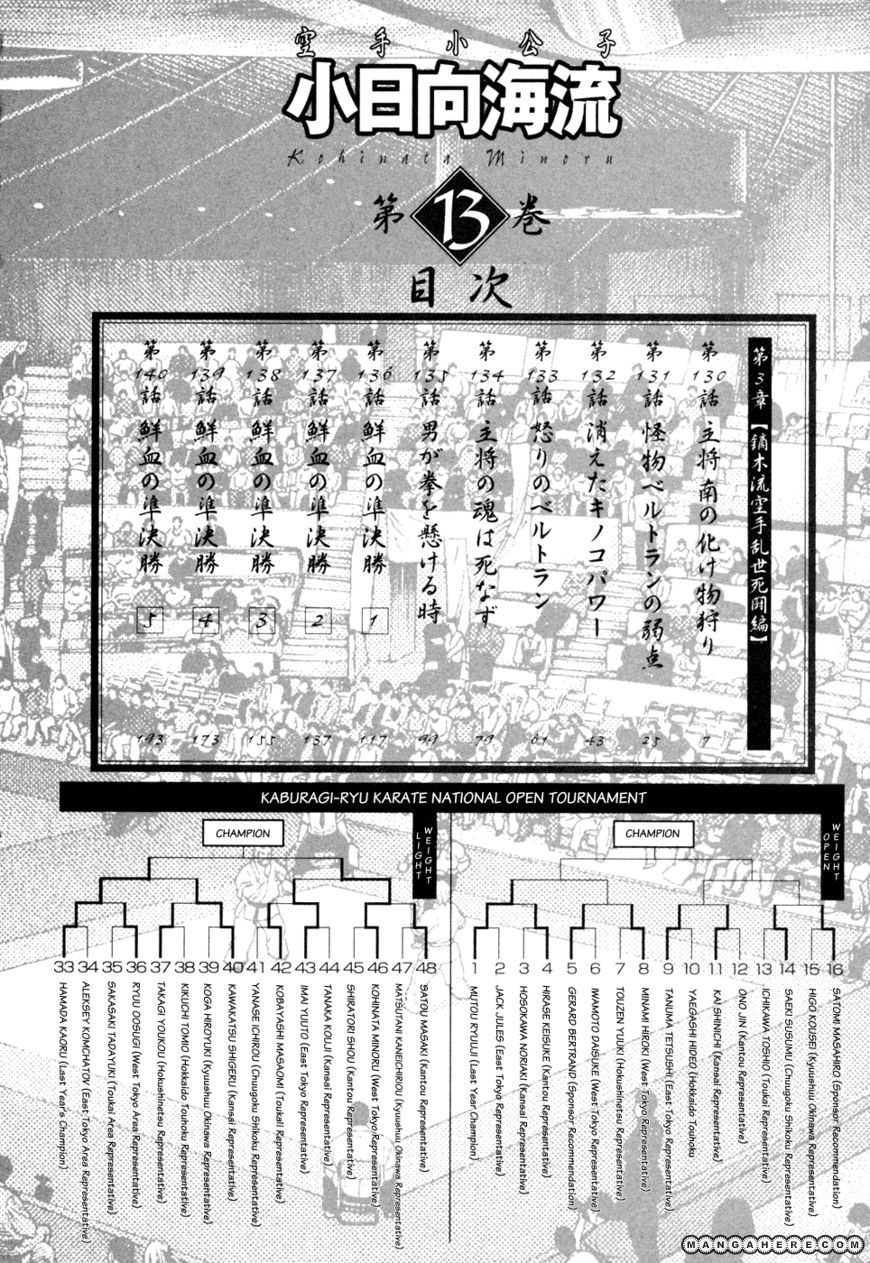 空手小公子
小日向海流
Kohinata Minoru
第13巻
目次
第3章【鏑木流空手乱世死闘編】
第130話 主将南の化け物狩り 7
第131話 怪物ベルトランの弱点 25
第132話 消えたキノコパワー 43
第133話 怒りのベルトラン 61
第134話 主将の魂は死なず 79
第135話 男が拳を懸ける時 99
第136話 鮮血の準決勝 1 117
第137話 鮮血の準決勝 2 137
第138話 鮮血の準決勝 3 155
第139話 鮮血の準決勝 4 173
第140話 鮮血の準決勝 5 193
KABURAGI-RYU KARATE NATIONAL OPEN TOURNAMENT
LIGHT WEIGHT
CHAMPION
33 HAMADA KAORU (Last Year's Champion)
34 ALEKSEY KOMCHATOV (East Tokyo Area Representative)
35 SAKASAKI TADAYUKI (Toukai Area Representative)
36 RYUU OOSUGI (West Tokyo Area Representative)
37 TAKAGI YOUKOU (Hokushinetsu Representative)
38 KIKUCHI TOMIO (Hokkaido Touhoku Representative)
39 KOGA HIROYUKI (Kyuushuu Okinawa Representative)
40 KAWAKATSU SHIGERU (Kansai Representative)
41 YANASE ICHIROU (Chuugoku Shikoku Representative)
42 KOBAYASHI MASAOMI (Toukai Representative)
43 IMAI YUUTO (East Tokyo Representative)
44 TANAKA KOUJI (Kansai Representative)
45 SHIRATORI SHOU (Kantou Representative)
46 KOHINATA MINORU (West Tokyo Representative)
47 MATSUTANI KANEICHIROU (Kyuushuu Okinawa Representative)
48 SATOU MASAKI (Kantou Representative)
OPEN WEIGHT
CHAMPION
1 MUTOU RYUUJI (Last Year Champion)
2 JACK JULES (East Tokyo Representative)
3 HOSOKAWA NORIAKI (Kansai Representative)
4 HIRASE KEISUKE (Kantou Representative)
5 GERARD BERTRAND (Sponsor Recommendation)
6 IWAMOTO DAISUKE (West Tokyo Representative)
7 TOUZEN YUUKI (Hokushinetsu Representative)
8 MINAMI HIROKI (West Tokyo Representative)
9 TANUMA TETSUSHI (East Tokyo Representative)
10 YAEGASHI HIDEO (Hokkaido Touhoku
11 KAI SHINICHI (Kansai Representative)
12 ONO JIN (Kantou Representative)
13 ICHIKAWA TOSHIO (Toukai Representative)
14 SAEKI SUSUMU (Chuugoku Shikoku Representative)
15 HIGO KOUSEI (Kyuushuu Okinawa Representative)
16 SATOMI MASAHIRO (Sponsor Recommendation)
MANGAHERE.COM